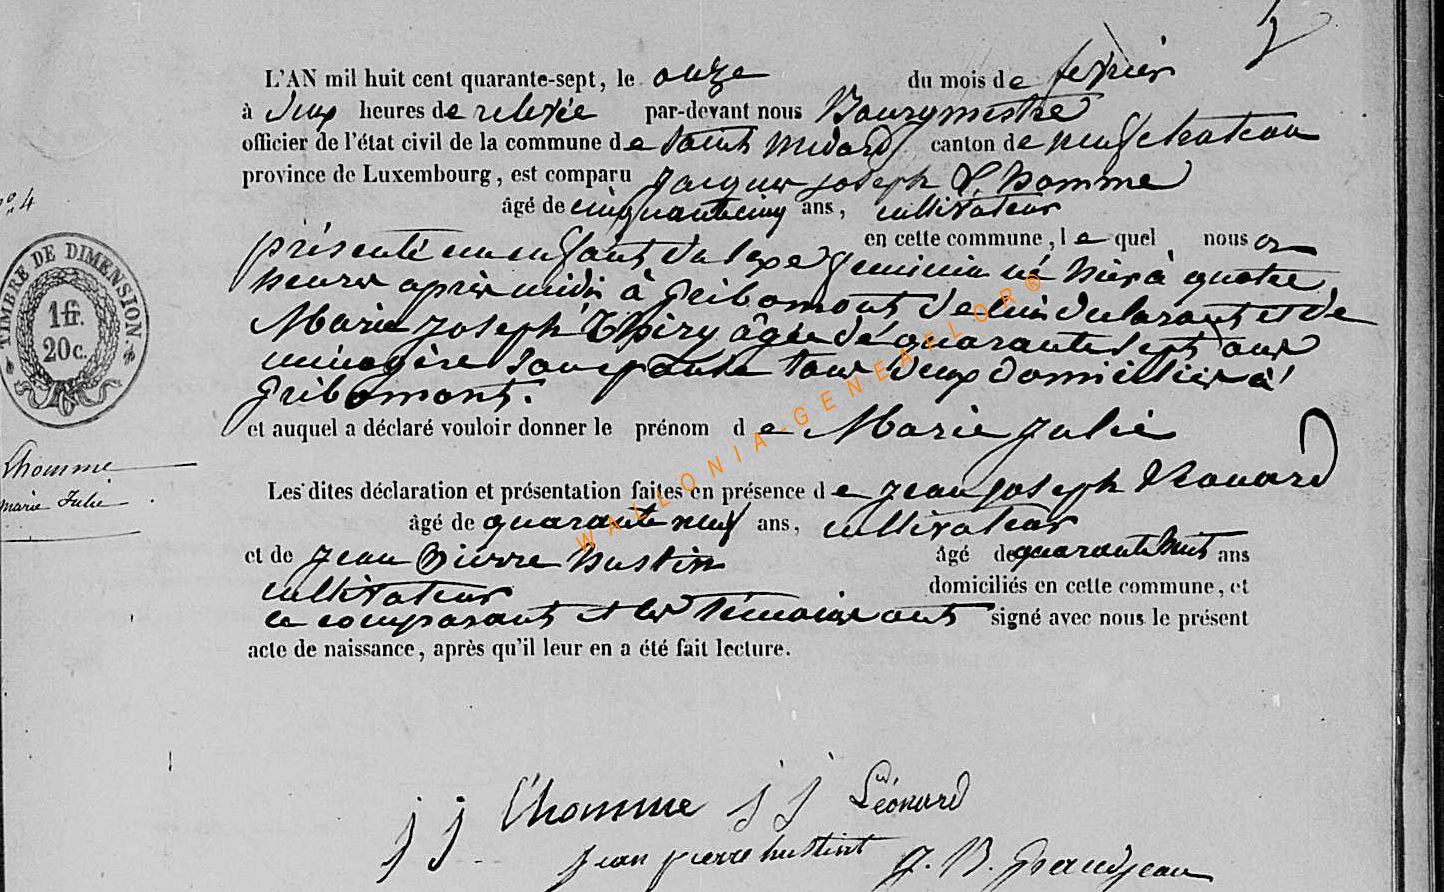 L'AN mil huit cent quarante-sept, le onze du mois de fevrier
à deux heures de relevée par-devant nous Bourgmestre
officier de l'état civil de la commune de Saint Médard canton de neufchateau
province de Luxembourg, est comparu Jacques joseph L'homme
n° 4
âgé de cinquante cinq ans, cultivateur
en cette commune, lequel nous a
présenté un enfant du sexe feminin né hier à quatre
heures après midi à Gribomont de lui déclarant et de
Marie joseph Thiry âgée de quarante sept ans
ménagère son épouse tous deux domiciliés à
Gribomont.
TIMBRE DE DIMENSION.
1 fr.
20 c.
et auquel a déclaré vouloir donner le prénom de Marie Julie
Lhomme
marie Julie
Les dites déclaration et présentation faites en présence de Jean joseph
âgé de quarante neuf ans, cultivateur
et de Jean Pierre hustin âgé de quarante huit ans
cultivateur domiciliés en cette commune, et
le comparant et les témoins ont signé avec nous le présent
acte de naissance, après qu'il leur en a été fait lecture.
WALLONIA-GENEAFLOR®
j j Lhomme j j Léonard
jean pierre hustint J. B. Grandjean